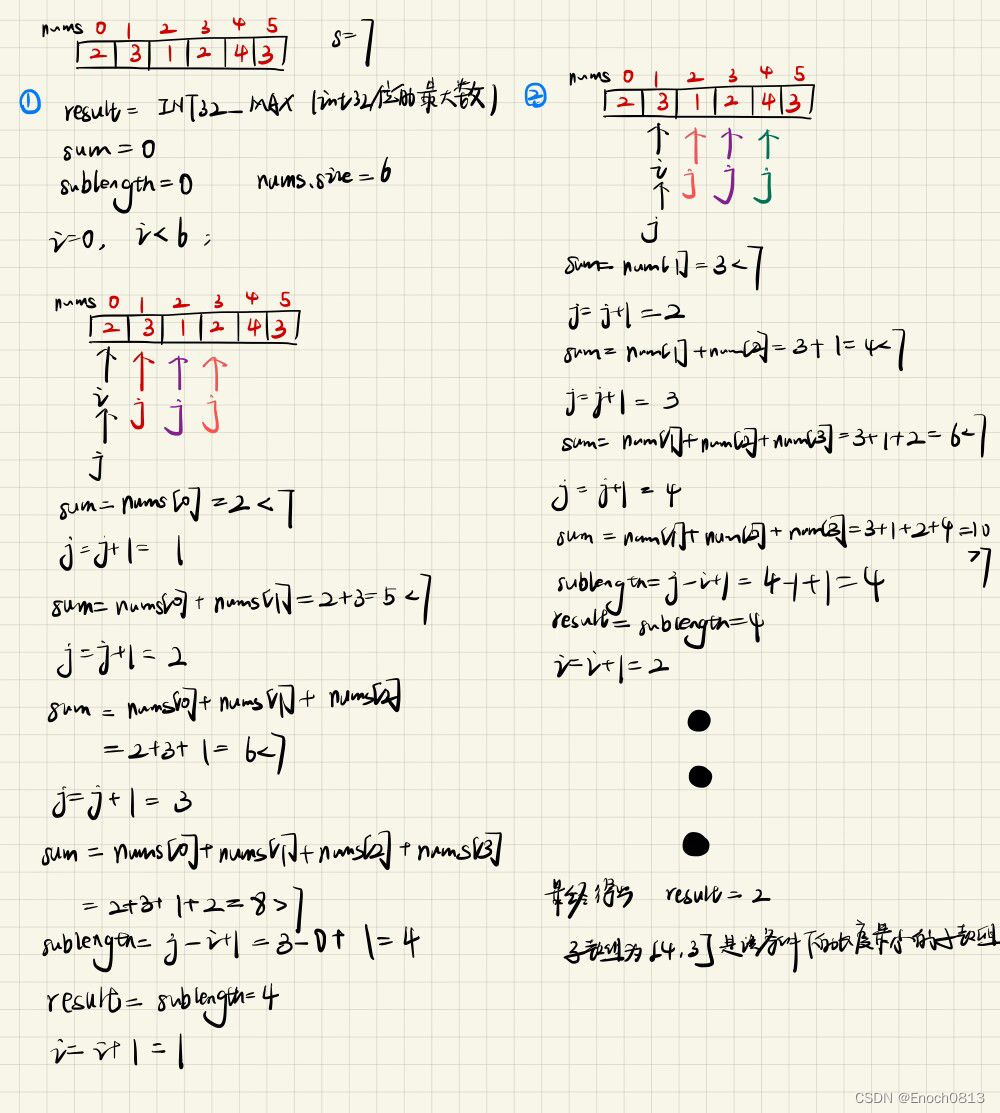 nums 0 1 2 3 4 5
2 3 1 2 4 3
s=7
① result = INT32_MAX (int32位的最大数)
sum = 0
sublength = 0 nums.size = 6
i=0, i<6 ;
nums 0 1 2 3 4 5
2 3 1 2 4 3
i j j j
j
sum = nums[0] = 2 < 7
j = j+1 = 1
sum = nums[0] + nums[1] = 2+3 = 5 < 7
j = j+1 = 2
sum = nums[0] + nums[1] + nums[2]
= 2+3+1 = 6<7
j = j+1 = 3
sum = nums[0] + nums[1] + nums[2] + nums[3]
= 2+3+1+2 = 8 > 7
sublength = j-i+1 = 3-0+1 = 4
result = sublength = 4
i = i+1 = 1
② nums 0 1 2 3 4 5
2 3 1 2 4 3
i j j j
j
sum = num[1] = 3 < 7
j = j+1 = 2
sum = num[1] + num[2] = 3+1 = 4<7
j = j+1 = 3
sum = num[1] + num[2] + num[3] = 3+1+2 = 6<7
j = j+1 = 4
sum = num[1] + num[2] + num[3] = 3+1+2+4 = 10
>7
sublength = j-i+1 = 4-1+1 = 4
result = sublength = 4
i = i+1 = 2
最终得出 result = 2
子数组为[4,3]是该条件下的长度最小的子数组
CSDN @Enoch0813